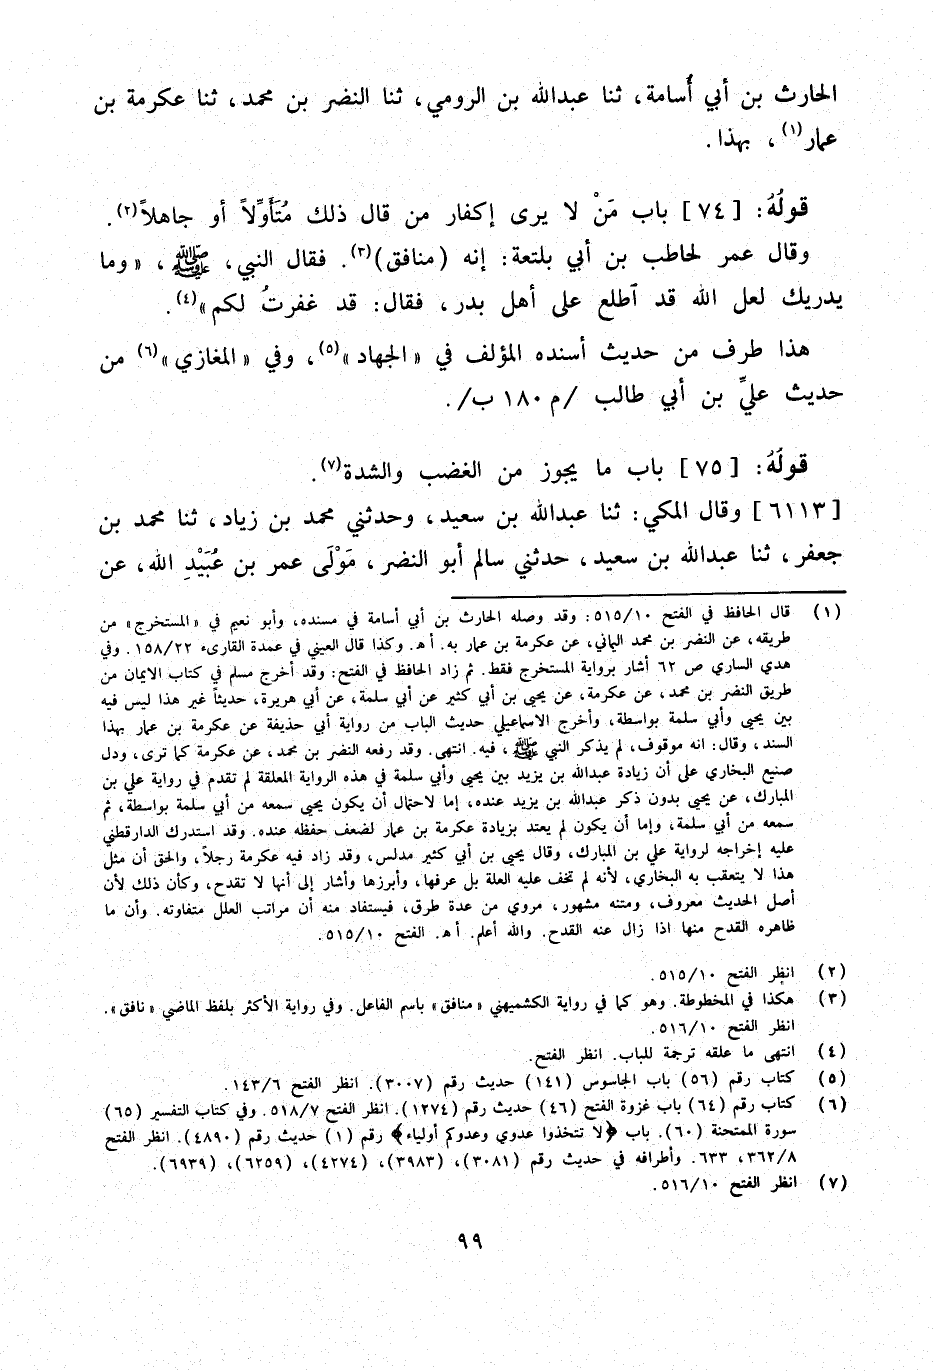 الحارث بن أبي أُسامة، ثنا عبدالله بن الرومي، ثنا النضر بن محمد، ثنا عكرمة بن
عمار(١)، بهذا.
قولُهُ: [٧٤] باب مَنْ لا يرى إكفار من قال ذلك مُتَأَوِّلاً أو جاهلاً(٢).
وقال عمر لحاطب بن أبي بلتعة: إنه (منافق)(٣). فقال النبي، ﷺ، «وما
يدريك لعل الله قد اَطلع على أهل بدر، فقال: قد غفرتُ لكم»(٤).
هذا طرف من حديث أسنده المؤلف في «الجهاد»(٥)، وفي «المغازي»(٦) من
حديث عليِّ بن أبي طالب /م ١٨٠ ب/.
قولُهُ: [٧٥] باب ما يجوز من الغضب والشدة(٧).
[٦١١٣] وقال المكي: ثنا عبدالله بن سعيد، وحدثني محمد بن زياد، ثنا محمد بن
جعفر، ثنا عبدالله بن سعيد، حدثني سالم أبو النضر، مَوْلَى عمر بن عُبَيْدِ الله، عن
(١) قال الحافظ في الفتح ٥١٥/١٠: وقد وصله الحارث بن أبي أسامة في مسنده، وأبو نعيم في «المستخرج» من
طريقه، عن النضر بن محمد اليماني، عن عكرمة بن عمار به. أ هـ. وكذا قال العيني في عمدة القارىء ١٥٨/٢٢. وفي
هدي الساري ص ٦٢ أشار برواية المستخرج فقط. ثم زاد الحافظ في الفتح: وقد أخرج مسلم في كتاب الايمان من
طريق النضر بن محمد، عن عكرمة، عن يحيى بن أبي كثير عن أبي سلمة، عن أبي هريرة، حديثاً غير هذا ليس فيه
بين يحيى وأبي سلمة بواسطة، وأخرج الاسماعيلي حديث الباب من رواية أبي حذيفة عن عكرمة بن عمار بهذا
السند، وقال: انه موقوف، لم يذكر النبي ﷺ، فيه. انتهى. وقد رفعه النضر بن محمد، عن عكرمة كما ترى، ودل
صنيع البخاري على أن زيادة عبدالله بن يزيد بين يحيى وأبي سلمة في هذه الرواية المعلقة لم تقدم في رواية علي بن
المبارك، عن يحيى بدون ذكر عبدالله بن يزيد عنده، إما لاحتمال أن يكون يحيى سمعه من أبي سلمة بواسطة، ثم
سمعه من أبي سلمة، وإما أن يكون لم يعتد بزيادة عكرمة بن عمار لضعف حفظه عنده. وقد استدرك الدارقطني
عليه إخراجه لرواية علي بن المبارك، وقال يحيى بن أبي كثير مدلس، وقد زاد فيه عكرمة رجلاً، والحق أن مثل
هذا لا يتعقب به البخاري، لأنه لم تخف عليه العلة بل عرفها، وأبرزها وأشار إلى أنها لا تقدح، وكأن ذلك لأن
أصل الحديث معروف، ومتنه مشهور، مروي من عدة طرق، فيستفاد منه أن مراتب العلل متفاوته. وأن ما
ظاهره القدح منها اذا زال عنه القدح. والله أعلم. أ هـ. الفتح ٥١٥/١٠.
(٢) انظر الفتح ٥١٥/١٠.
(٣) هكذا في المخطوطة. وهو كما في رواية الكشميهني «منافق» باسم الفاعل. وفي رواية الأكثر بلفظ الماضي «نافق».
انظر الفتح ٥١٦/١٠.
(٤) انتهى ما علقه ترجمة للباب. انظر الفتح.
(٥) كتاب رقم (٥٦) باب الجاسوس (١٤١) حديث رقم (٣٠٠٧). انظر الفتح ١٤٣/٦.
(٦) كتاب رقم (٦٤) باب غزوة الفتح (٤٦) حديث رقم (١٢٧٤). انظر الفتح ٥١٨/٧. وفي كتاب التفسير (٦٥)
سورة الممتحنة (٦٠). باب ﴿لا تتخذوا عدوي وعدوكم أولياء﴾ رقم (١) حديث رقم (٤٨٩٠). انظر الفتح
٣٦٢/٨، ٦٣٣. وأطرافه في حديث رقم (٣٠٨١)، (٣٩٨٣)، (٤٢٧٤)، (٦٢٥٩)، (٦٩٣٩).
(٧) انظر الفتح ٥١٦/١٠.
٩٩